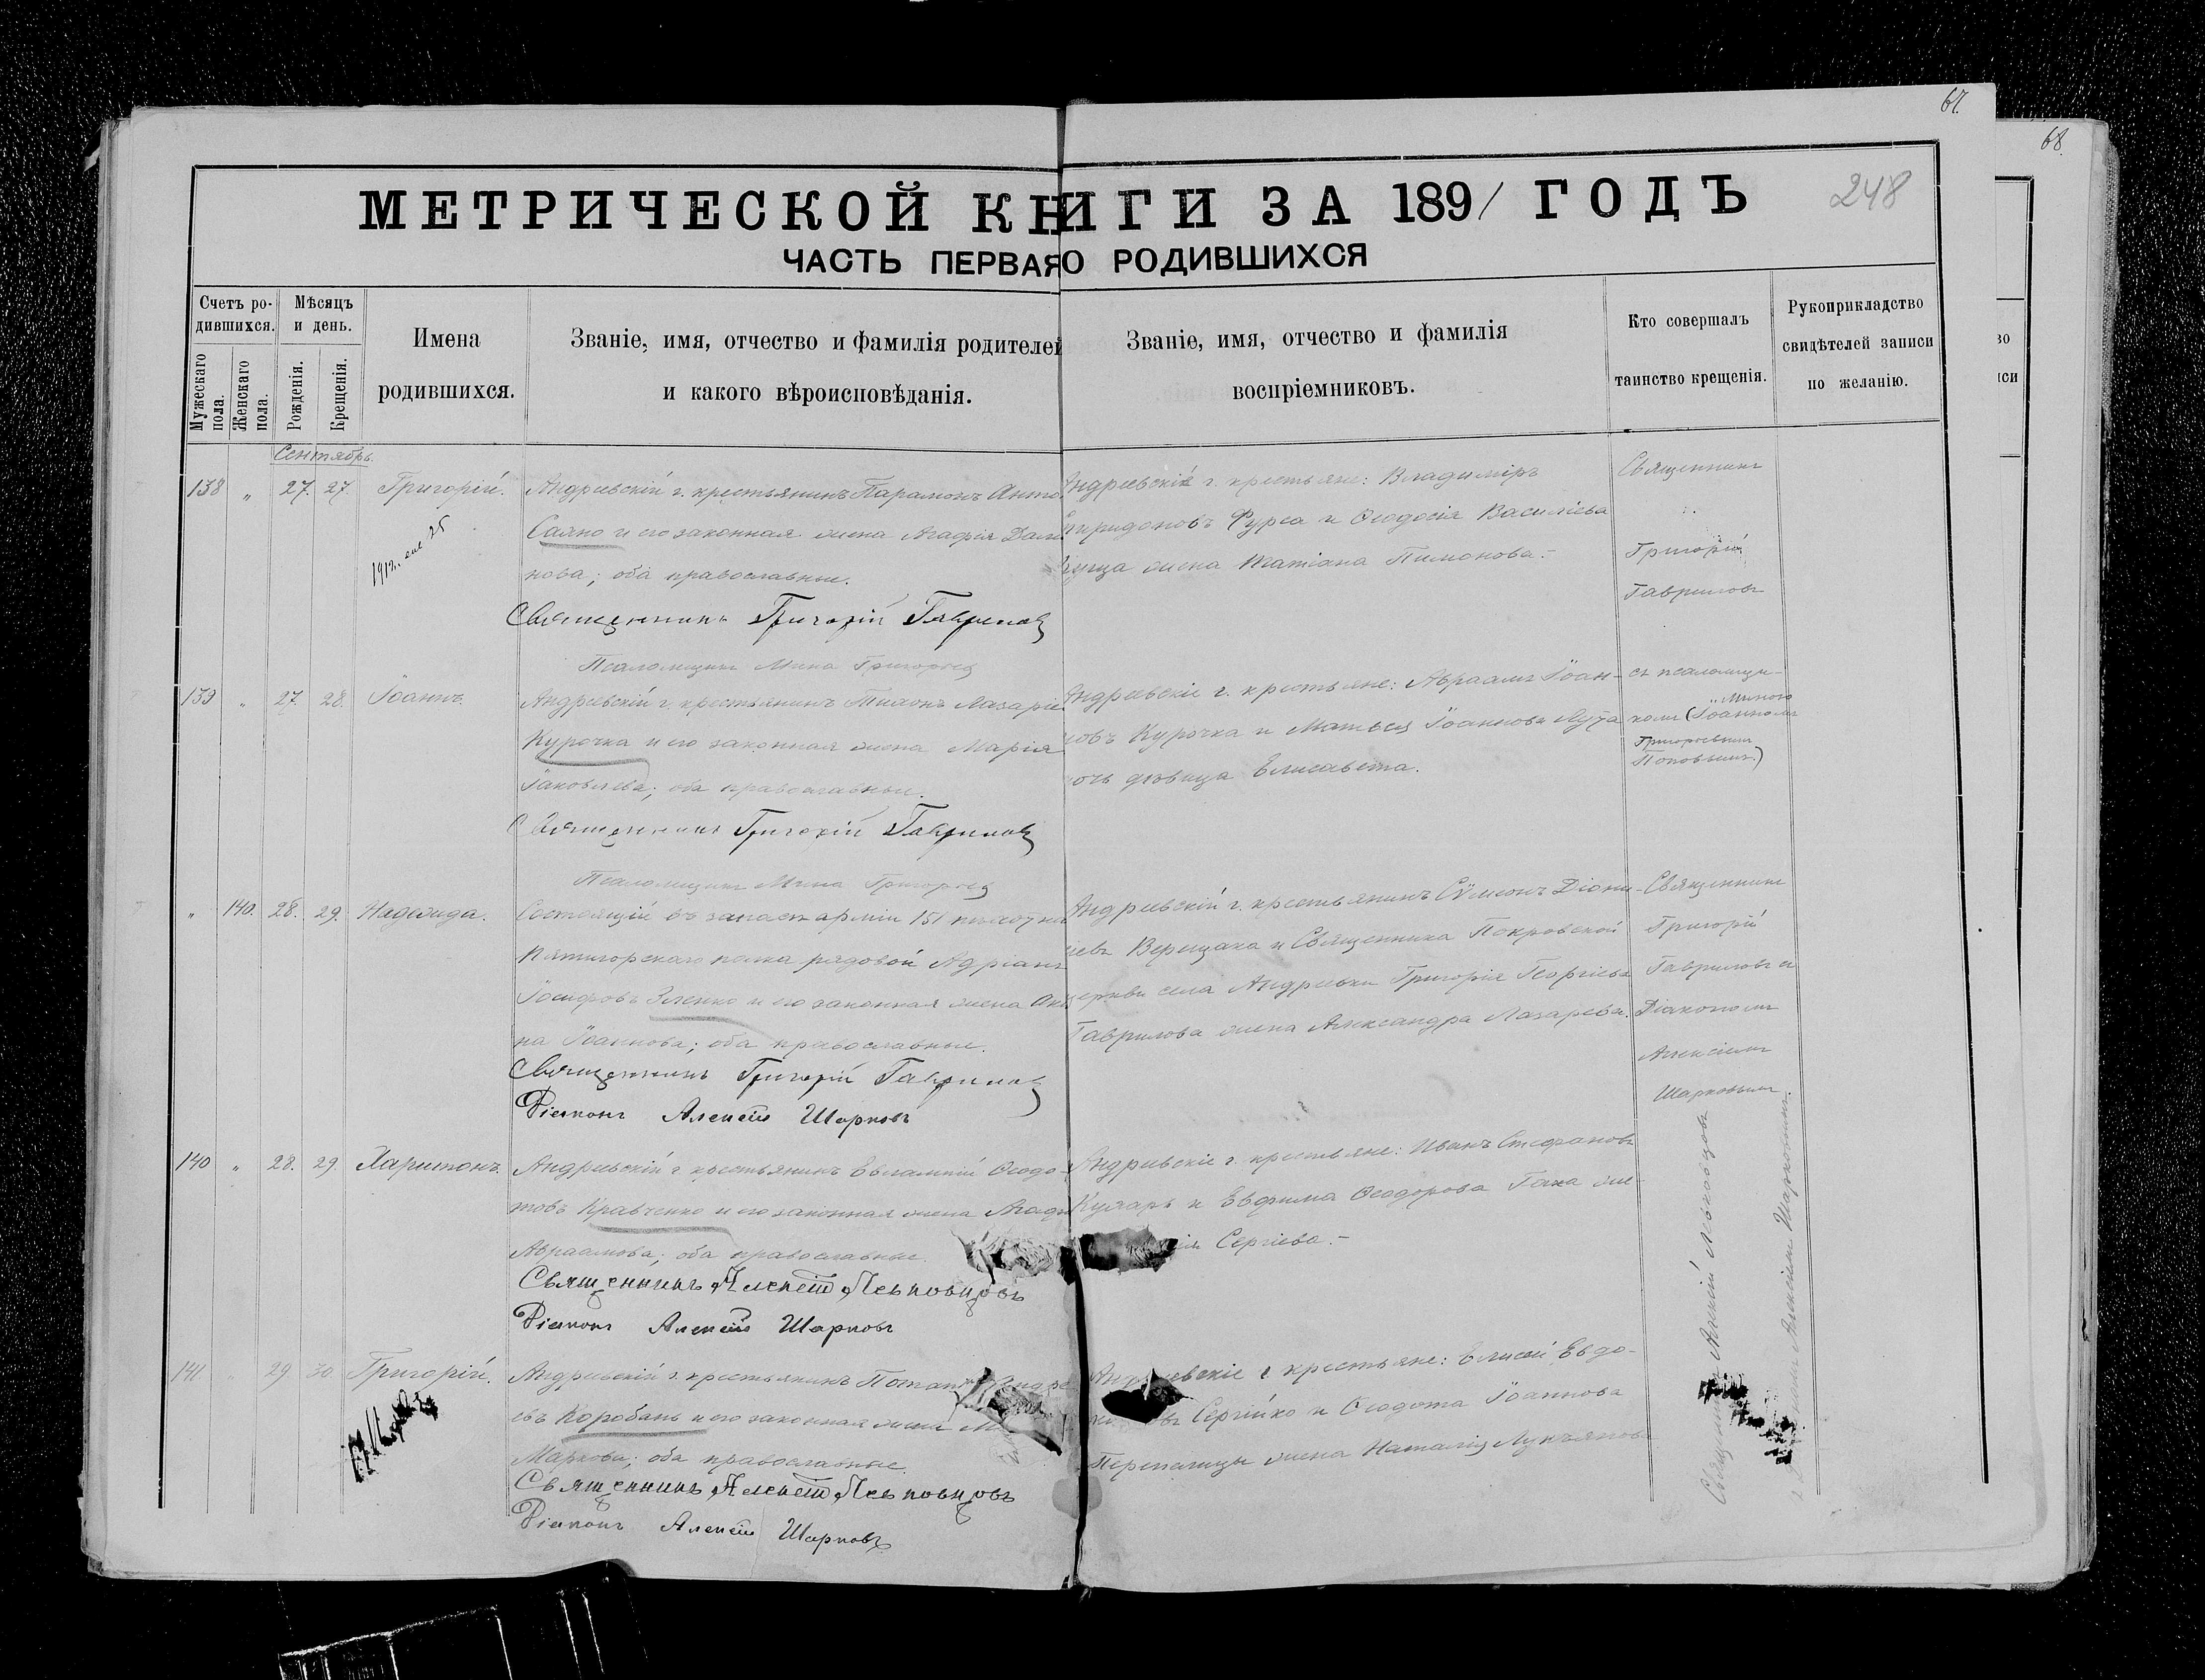 67.
68.
МЕТРИЧЕСКОЙ КНИГИ ЗА 1891 ГОДЪ
248
ЧАСТЬ ПЕРВАЯ О РОДИВШИХСЯ
Счетъ ро-
дившихся.
Мужескаго пола.
Женскаго пола.
Мѣсяцъ
и день.
Рожденія.
Крещенія.
Имена
родившихся.
Званіе, имя, отчество и фамилія родителей
и какого вѣроисповѣданія.
Званіе, имя, отчество и фамилія
воспріемниковъ.
Кто совершалъ
таинство крещенія.
Рукоприкладство
свидѣтелей записи
по желанію.
во
иси
Сентябрь.
138 " 27. 27. Григорій.
Андреевскій г. крестьянинъ Парамонъ Анто
Саяно и его законная жена Агафія
нова; оба православные.
Священникъ Григорій Гавриловъ
Псаломщикъ Мина Григорьев
Андреевскіе г. крестьяне: Владиміръ
Спиридоновъ Фурса и Ѳеодосія Василіева
жена Татіана Пимонова.-
Священникъ
Григорій
Гавриловъ
139 " 27. 28. Іоаннъ.
Андреевскій г. крестьянинъ Тихонъ Лазаріе
Курочка и его законная жена Марія
Іаковлева; оба православные.
Священникъ Григорій Гавриловъ
Псаломщикъ Мина Григорьев
Андреевскіе г. крестьяне: Авраамъ Іоан-
новъ Курочка и Матвея Іоаннова
дочь дѣвица Елисавета.
съ псаломщи-
Миною
комъ (Іоанномъ
Григорьевым
Поповымъ.)
" 140. 28. 29. Надежда.
Состоящій въ запасѣ арміи 151 пѣхотна
Пятигорскаго полка рядовой Адріанъ
Іосифовъ Зленко и его законная жена Ан
на Іоаннова; оба православные.
Священникъ Григорій Гавриловъ
Діаконъ Алексій Шарковъ
Андреевскій г. крестьянинъ Сѵмеонъ Діони-
сіевъ Верещака и Священника Покровской
церкви села Андреевки Григорія Георгіева
Гаврилова жена Александра Лазарева.
Священникъ
Григорій
Гавриловъ съ
Діакономъ
Алексіемъ
Шарковымъ.
140 " 28. 29. Харитонъ.
Андреевскій г. крестьянинъ Евлампій Ѳеодо-
товъ Кравченко и его законная жена Агафі
Авраамова; оба православные.
Священникъ Алексій Левковцовъ
Діаконъ Алексій Шарковъ
Андреевскіе г. крестьяне: Иванъ Стефановъ
Кухарь и Евфима Ѳеодорова Гака же-
Сергіева.-
141 " 29. 30. Григорій.
Андреевскій г. крестьянинъ Андре
евъ Коробань и его законная жена
Маркова; оба православные.
Священникъ Алексій Левковцовъ
Діаконъ Алексій Шарковъ
Андреевскіе г. крестьяне: Елисей Евдо-
Сергійко и Ѳеодота Іоаннова
Перепелицы жена Наталія Лукьянова
Священникъ Алексій Левковцовъ
съ Діакономъ Алексіемъ Шарковымъ.